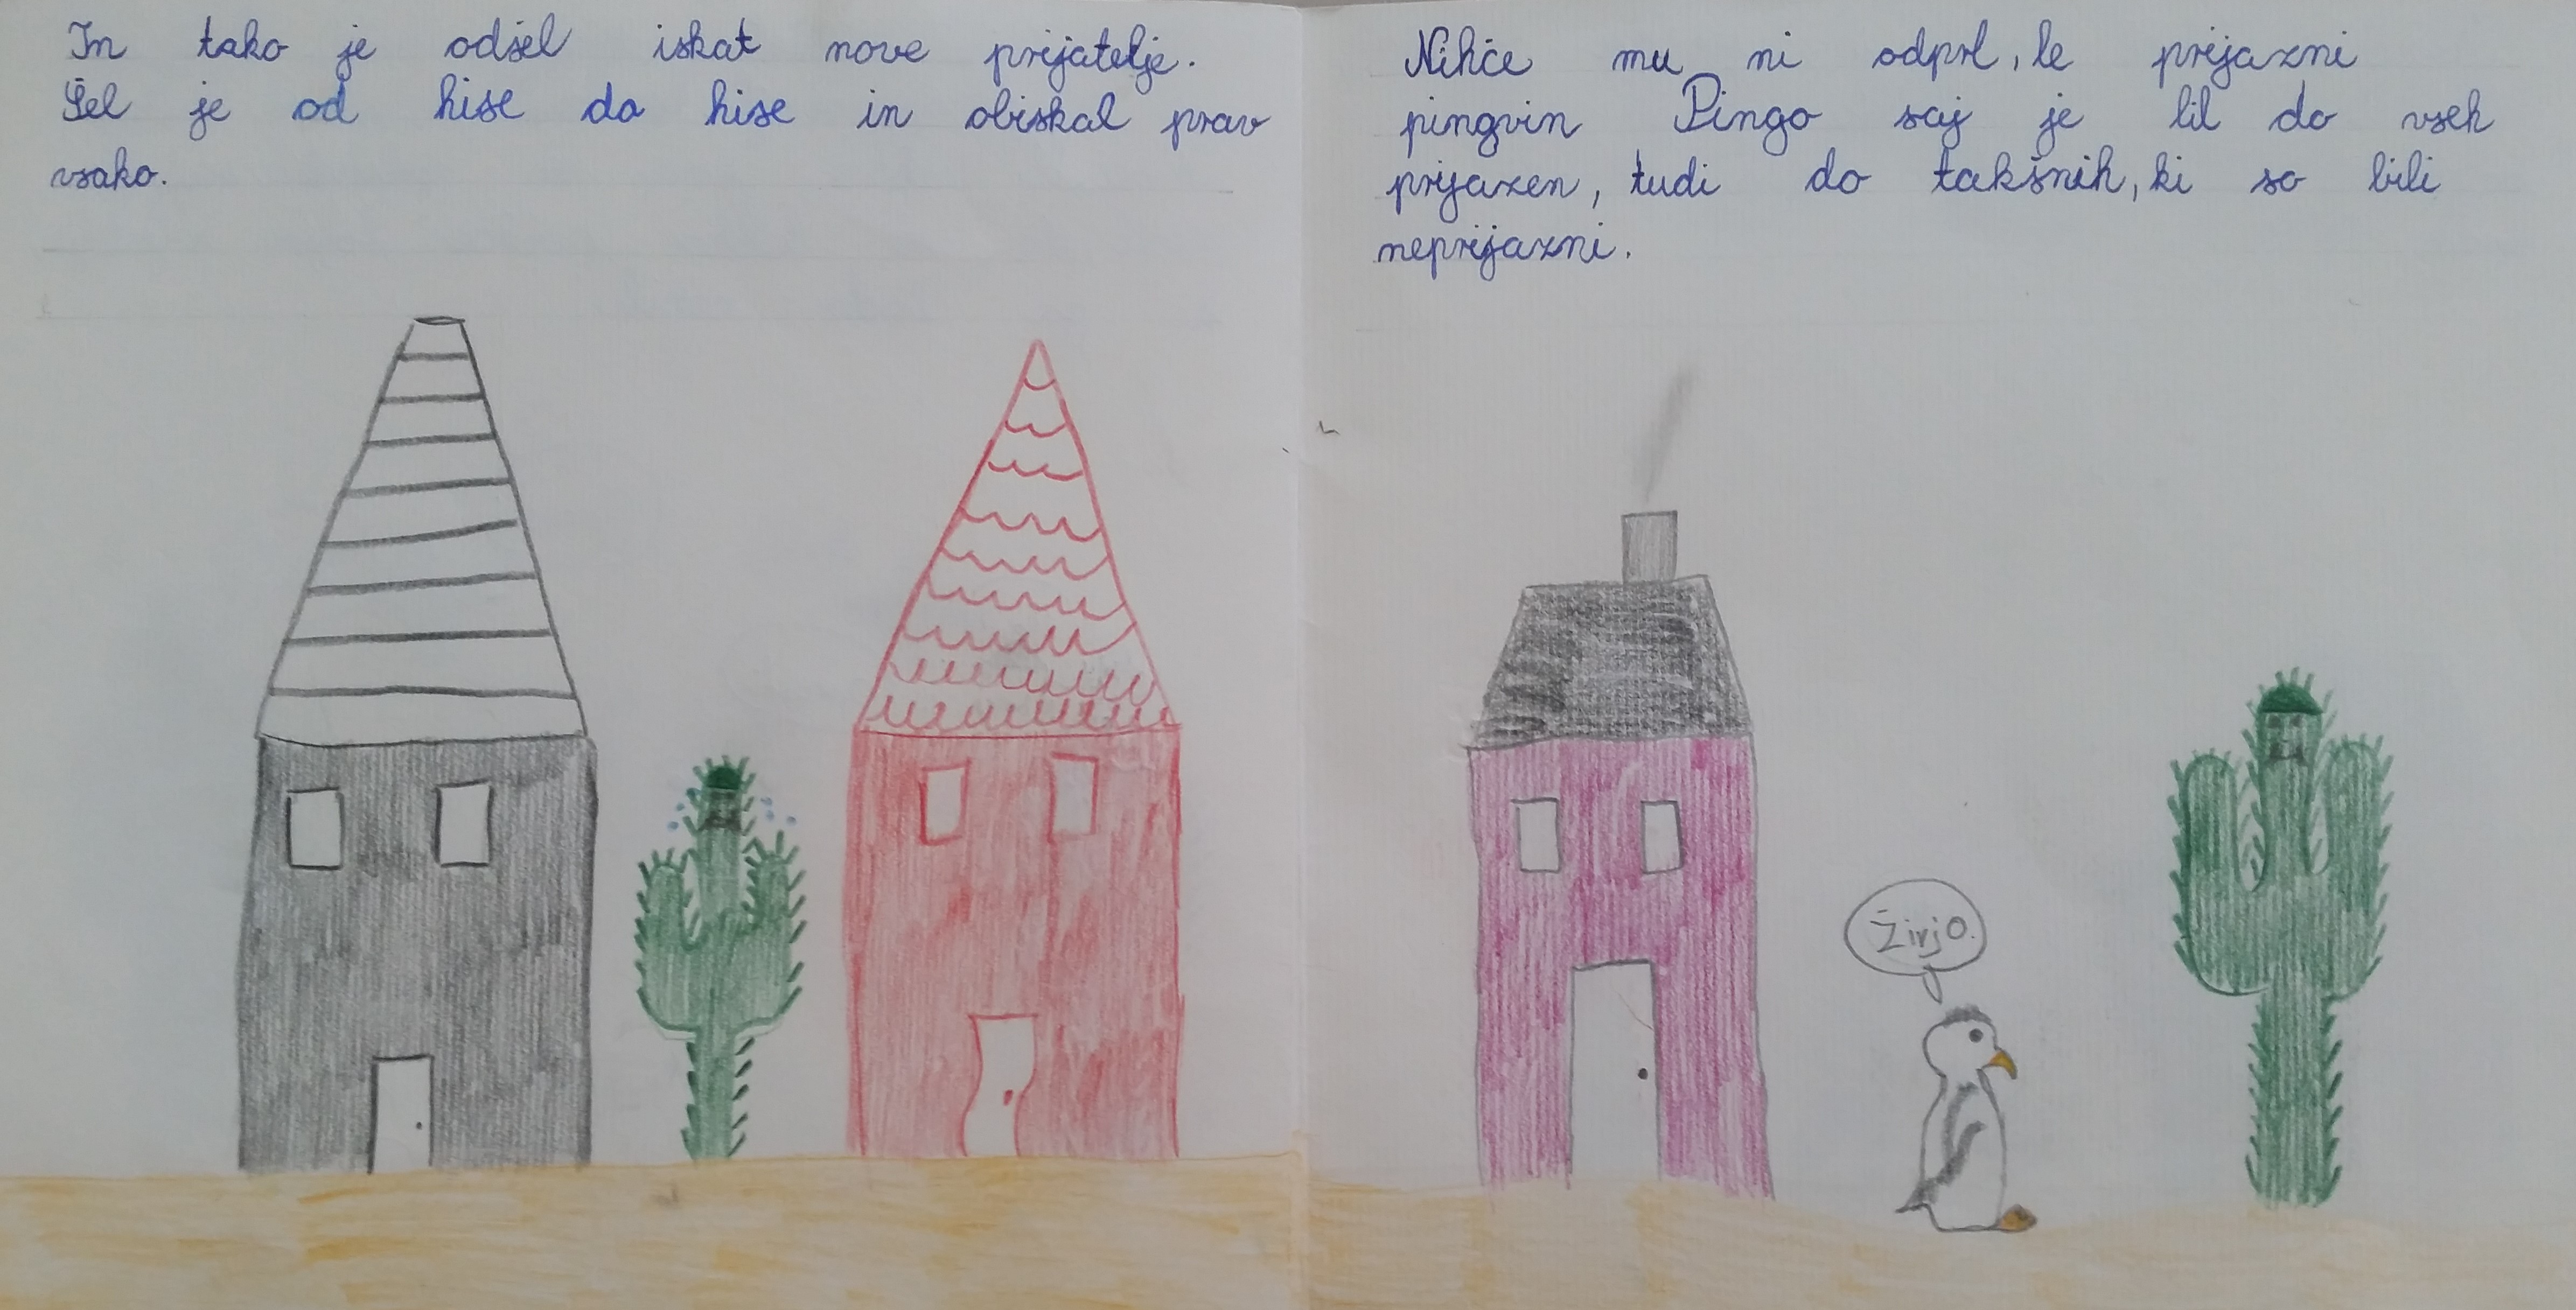 In tako je odšel iskat nove prijatelje.
Šel je od hiše do hiše in obiskal prav
vsako.
Nihče mu ni odprl, le prijazni
pingvin Pingo saj je bil do vseh
prijazen, tudi do takšnih, ki so bili
neprijazni.
Živjo.